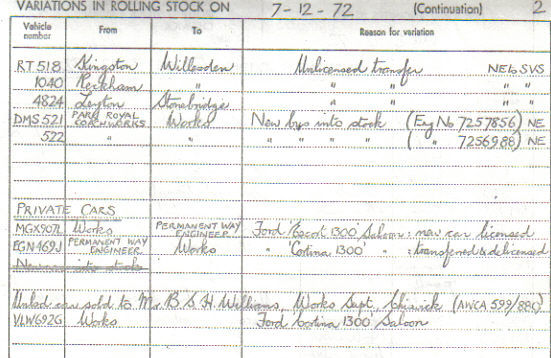 VARIATIONS IN ROLLING STOCK ON 7-12-72 (Continuation) 2
Vehicle number From To Reason for variation
RT 518 Kingston Willesden Unlicensed transfer NE to SVS
1040 Peckham " " " " "
4824 Leyton Stonebridge " " " "
DMS 521 PARK ROYAL COACHWORKS Works New bus into stock (Eng No 7257856) NE
522 " " " " " " ( " 7256988) NE
PRIVATE CARS
MGX907L Works PERMANENT WAY ENGINEER Ford 'Escort 1300' Saloon: new car licensed
EGN469J PERMANENT WAY ENGINEER Works " 'Cortina 1300' " : transferred & delicensed
Used car sold to Mr. B S H. Williams, Works Supt. Chiswick (AWCA 599/880)
VLW692G Works Ford 'Cortina 1300' Saloon